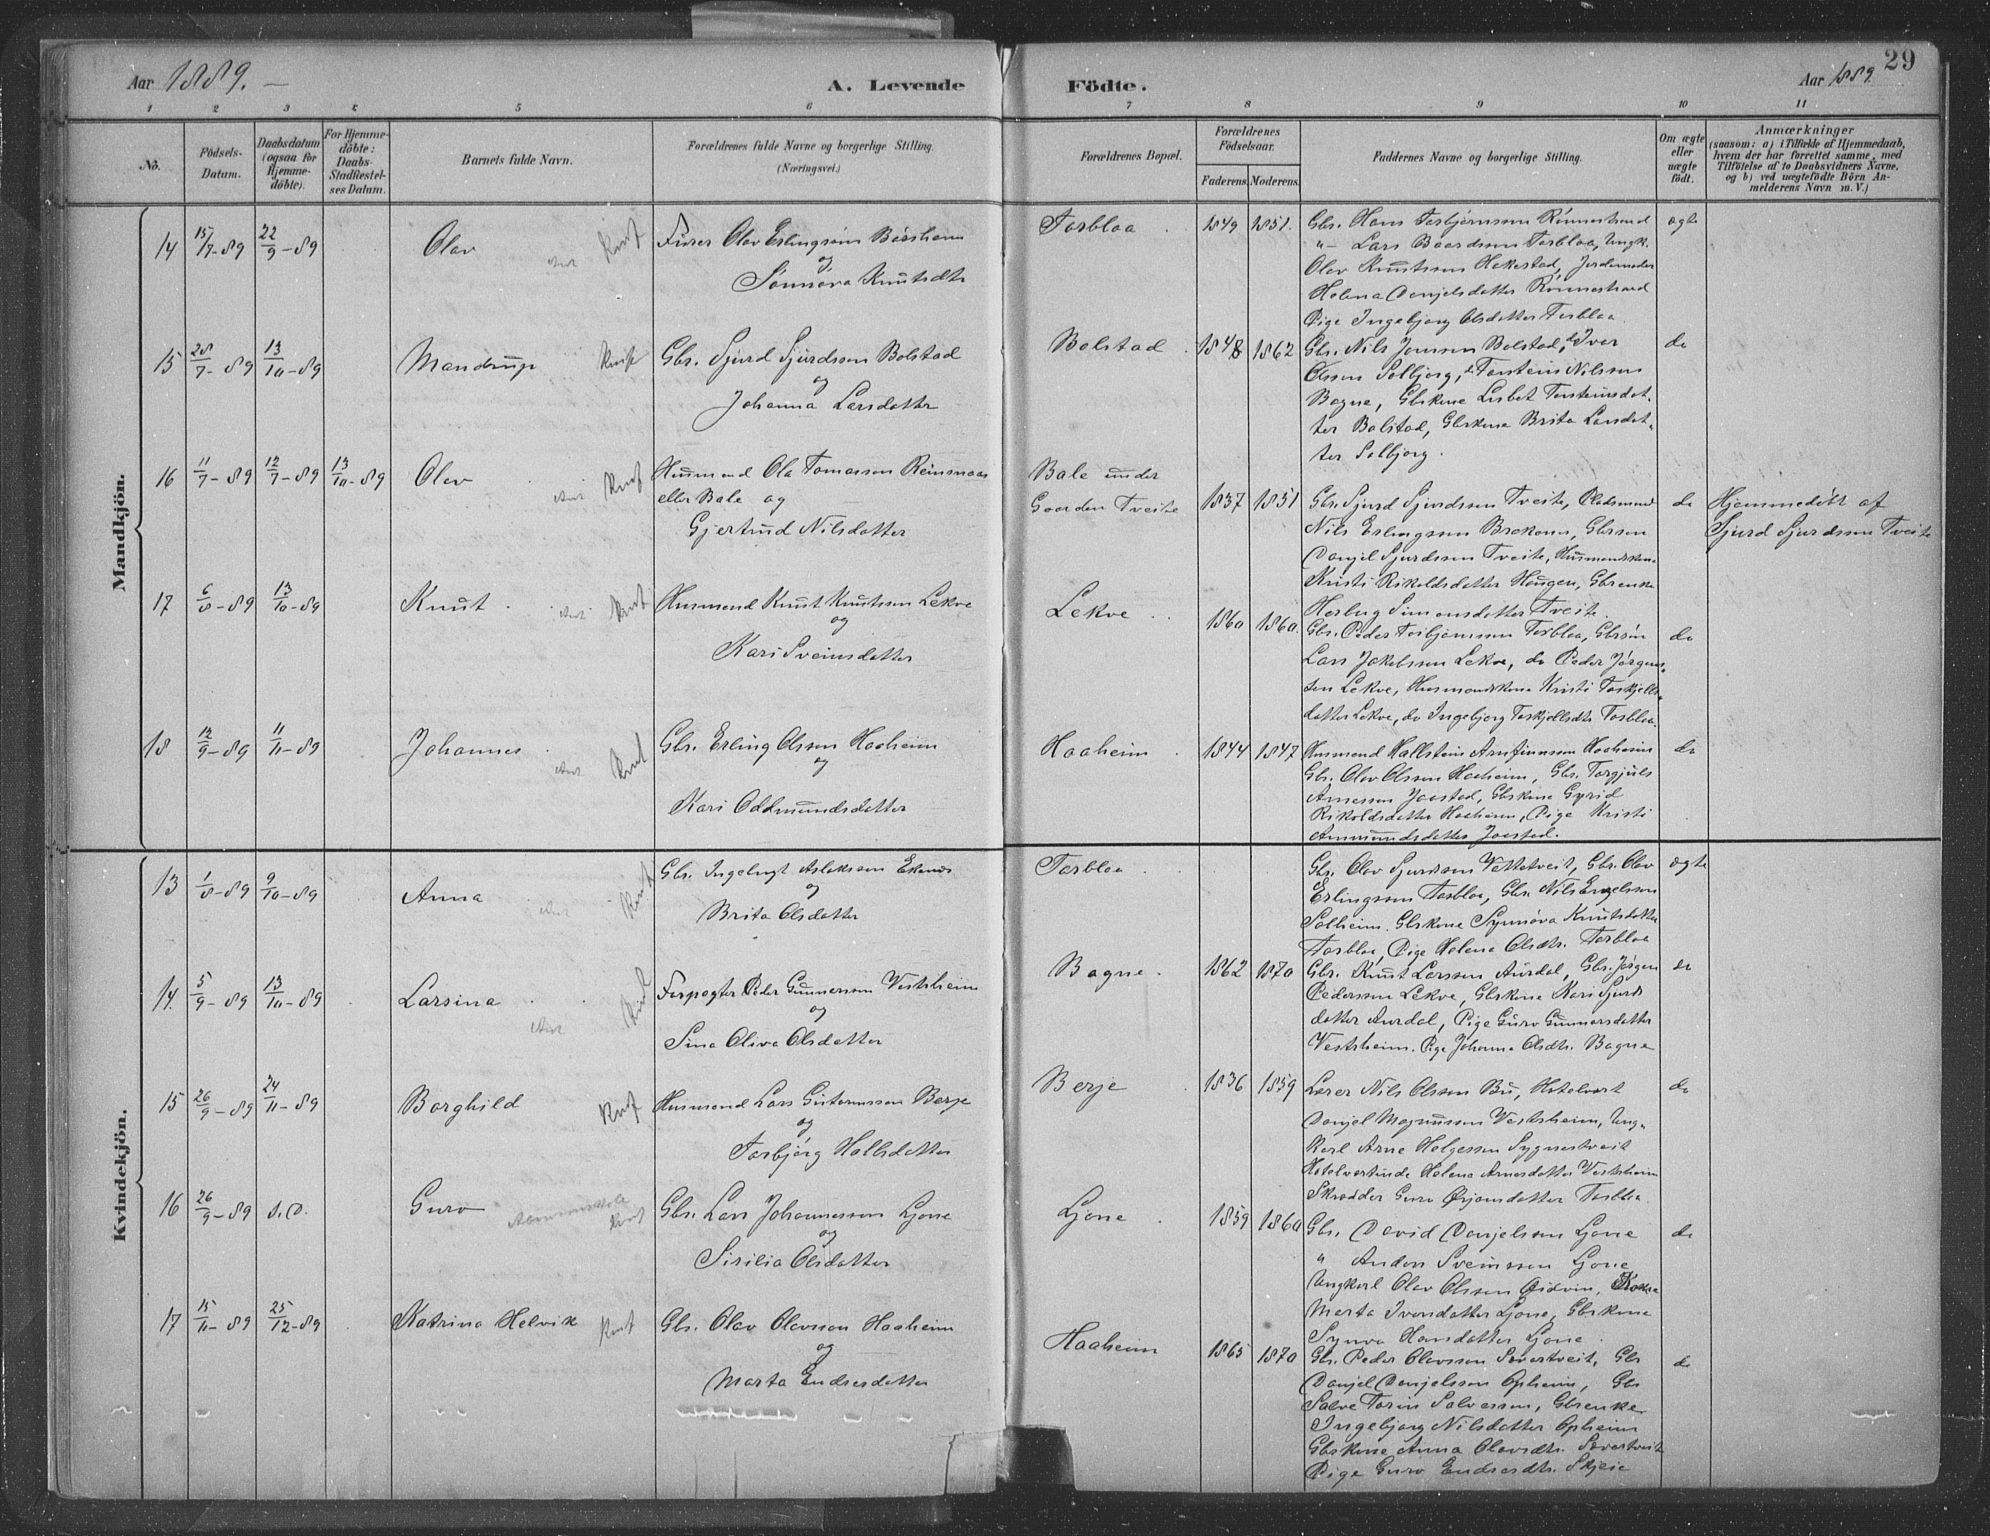 Aar 1889. A. Levende
Födte. Aar 1889. 29
1 2 3 4 5 6 7 8 9 10 11
No.
Födsels-Datum.
Daabsdatum (ogsaa for Hjemmedöbte).
For Hjemmedöbte: Daabs-Stadfæstelses Datum.
Barnets fulde Navn.
Forældrenes fulde Navne og borgerlige Stilling. (Næringsvei.)
Forældrenes Bopæl.
Forældrenes Födselsaar.
Faderens. Moderens.
Faddernes Navne og borgerlige Stilling.
Om ægte eller uægte födt.
Anmærkninger (saasom: a) i Tilfælde af Hjemmedaab, hvem der har forrettet samme, med Tilföielse af to Daabsvidners Navne, og b) ved uægtefödte Börn Anmelderens Navn m. V.)
Mandkjön.
14 15/7-89 22/9-89 Olav
Olav Erlingsøn
og
Sønnøva Knutsdtr
Torbloa 1849 1851.
Gbr. Hans Torbjørnssen Rønnestrand
"- Lars Baardssen Torbloa, Ungk.
Olav Knutssen Hakestad, Jordemoder
Helena Danjelsdatter Rønnestrand
Pige Ingebjørg Olsdatter Torbloa
ægte
15 28/7-89 13/10-89 Mandrup
Gbr. Sjurd Sjurdssen Bolstad
og
Johanna Larsdatter
Bolstad 1848 1862
Gbr. Nils Jonssen Bolstad, Iver
Olssen Solbjørg, Torstein Nilssen
Bagne, Gbrkone Lisbet Torsteinsdat-
ter Bolstad, Gbrkone Brita Larsdat-
ter Solbjørg.
do
16 11/7-89 12/7-89 13/10-89 Olav
Husmand Ola Tomassen Reinsnaas
eller Bale og
Gjertrud Nilsdatter
Bale under
Gaarden Tveite 1837 1851
Gbr. Sjurd Sjurdssen Tveite, Pladsmand
Nils Erlingssen Brakene, Gbrsøn
Danjel Sjurdssen Tveite, Husmandskone
Kristi Rikoldsdatter Haugen, Gbrenke
Herbug Simonsdatter Tveite.
do
Hjemmedøbt af
Sjurd Sjurdssen Tveite
17 6/8-89 13/10-89 Knut
Husmand Knut Knutssen Lekve
og
Kari Sveinsdatter
Lekve 1860 1860.
Gbr. Peder Torbjørnssen Torbloa, Gbrsøn
Lars Jakobssen Lekve, do Peder Jørgens-
sen Lekve, Husmandskone Kristi Torkjells-
datter Lekve, do Ingebjørg Torkjellsdtr Torbloa.
do
18 12/9-89 11/11-89 Johannes
Gbr. Erling Olssen Haaheim
og
Kari Oddmundsdatter
Haaheim 1844 1847
Husmand Hallstein Arnfinnssen Haaheim
Gbr. Olav Olssen Haaheim, Gbr. Torgjuls
Arnessen Jaastad, Gbrkone Gyrid
Rikoldsdatter Haaheim, Pige Kristi
Ammundsdatter Jaastad.
do
Kvindekjön.
13 1/8-89 9/10-89 Anna
Gbr. Aslakssen
og
Brita Olsdatter
Torbloa
Gbr. Olav Sjurdssen Vettetveit, Gbr. Olav
Erlingssen Torbloa, Gbr. Nils Engelssen
Solheim. Gbrkone Synnøva Knutsdatter
Torbloa, Pige Helena Olsdtr. Torbloa
ægte
14. 5/9-89 13/10-89 Larsina
Forpagter Peder Gunnarssen Vestrheim
og
Sina Oliva Olsdatter
Bagne. 1862 1870
Gbr. Knut Larssen Aurdal, Gbr. Jørgen
Pederssen Lekve, Gbrkone Kari Sjurds
datter Aurdal, Pige Guro Gunnarsdatter
Vestrheim. Pige Johanna Olsdtr. Bagne
do
15 26/9-89 24/11-89 Borghild
Husmand Lars Guttormssen Berje
og
Torbjørg Hallsdatter
Berje 1836 1859
Lærer Nils Olssen Bu, Hotelvert
Danjel Magnussen Vestrheim, Ung-
karl Arne Helgessen Sygnestveit
Hotelvertinde Helena Arnesdatter Vestrheim
Skrædder Guro Ørjansdatter Torbloa
do
16 26/9-89 s.D. Guro
Gbr. Lars Johannessen Ljone
og
Sirilia Olsdatter
Ljone 1859 1860
Gbr. David Danjelssen Ljone
" Anders Sveinssen Ljone
Ungkarl Olav Olssen
Marta Iversdatter Ljone, Gbrkone
Synva Hansdatter Ljone.
do
17 15/11-89 25/12-89 Katrina Helvik
Gbr. Olav Olavsson Haaheim
og
Marta Endresdatter
Haaheim 1865 1870
Gbr. Peder Olavsson Sævertveit, Gbr
Danjel Danjelssen Opheim, Gbr
Salve Torin Salvessen, Gbrenke
Ingebjørg Nilsdatter Opheim
Gbrkone Anna Olavsdtr. Sævertveit
Pige Guro Endresdtr. Skjeie
do